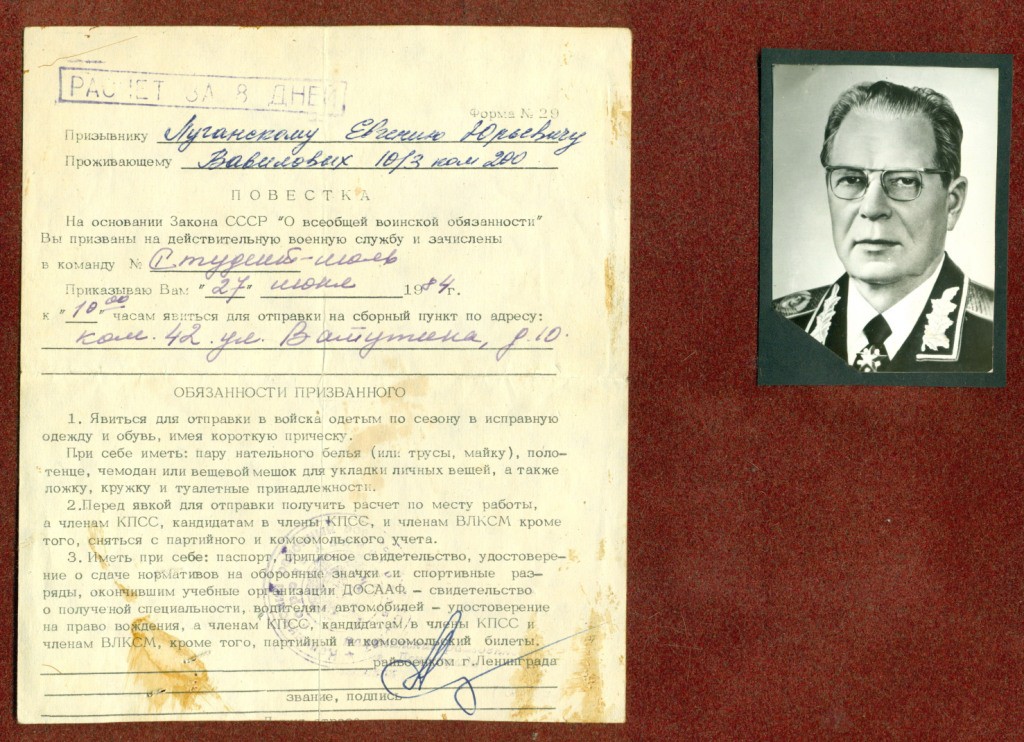 РАСЧЕТ ЗА 8 ДНЕЙ
Форма № 29
Призывнику Луганскому Евгению Юрьевичу
Проживающему Вавиловых 10/3 ком 200
ПОВЕСТКА
На основании Закона СССР "О всеобщей воинской обязанности"
Вы призваны на действительную военную службу и зачислены
в команду № Студент-июль
Приказываю Вам "27" июня 1984г.
к "10 00" часам явиться для отправки на сборный пункт по адресу:
ком. 42 ул. Ватутина, д. 10.
ОБЯЗАННОСТИ ПРИЗВАННОГО
1. Явиться для отправки в войска одетым по сезону в исправную
одежду и обувь, имея короткую прическу.
При себе иметь: пару нательного белья (или трусы, майку), поло-
тенце, чемодан или вещевой мешок для укладки личных вещей, а также
ложку, кружку и туалетные принадлежности.
2.Перед явкой для отправки получить расчет по месту работы,
а членам КПСС, кандидатам в члены КПСС, и членам ВЛКСМ кроме
того, сняться с партийного и комсомольского учета.
3. Иметь при себе: паспорт, приписное свидетельство, удостовере-
ние о сдаче нормативов на оборонные значки и спортивные раз-
ряды, окончившим учебные организации ДОСААФ - свидетельство
о полученой специальности, водителям автомобилей - удостоверение
на право вождения, а членам КПСС, кандидатам в члены КПСС и
членам ВЛКСМ, кроме того, партийный и комсомольский билеты.
райвоенком г.Ленинграда
звание, подпись